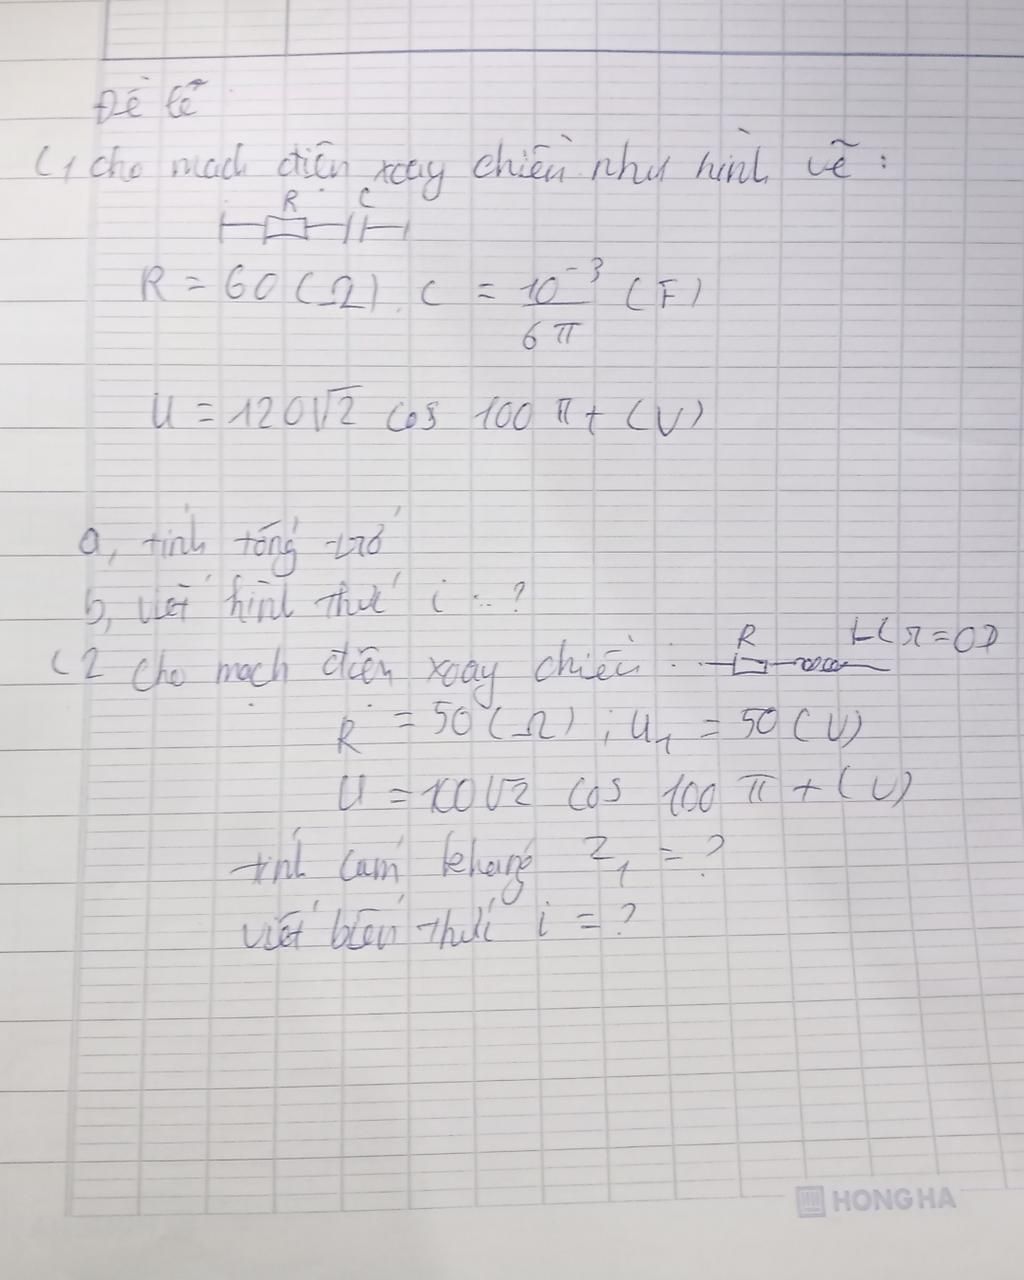 Đề lẽ
C1 cho mạch điện xoay chiều như hình vẽ :
R C
R = 60 (Ω), C = 10⁻³ (F)
6π
U = 120√2 cos 100 πt (V)
a, tính tổng trở
b, viết hình thức i = ?
R L(r=0)
C2 cho mạch điện xoay chiều :
R = 50 (Ω) ; U1 = 50 (V)
U = 100√2 cos 100 πt (V)
tính cảm kháng Z1 = ?
viết biến thức i = ?
HONG HA